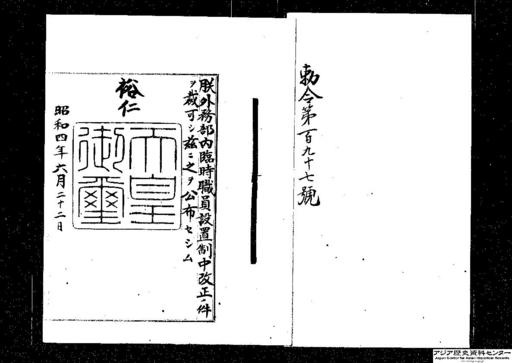 勅令第百九十七號
朕外務部内臨時職員設置制中改正ノ件
ヲ裁可シ茲ニ之ヲ公布セシム
裕仁
天皇御璽
昭和四年六月二十二日
アジア歴史資料センター
Japan Center for Asian Historical Records